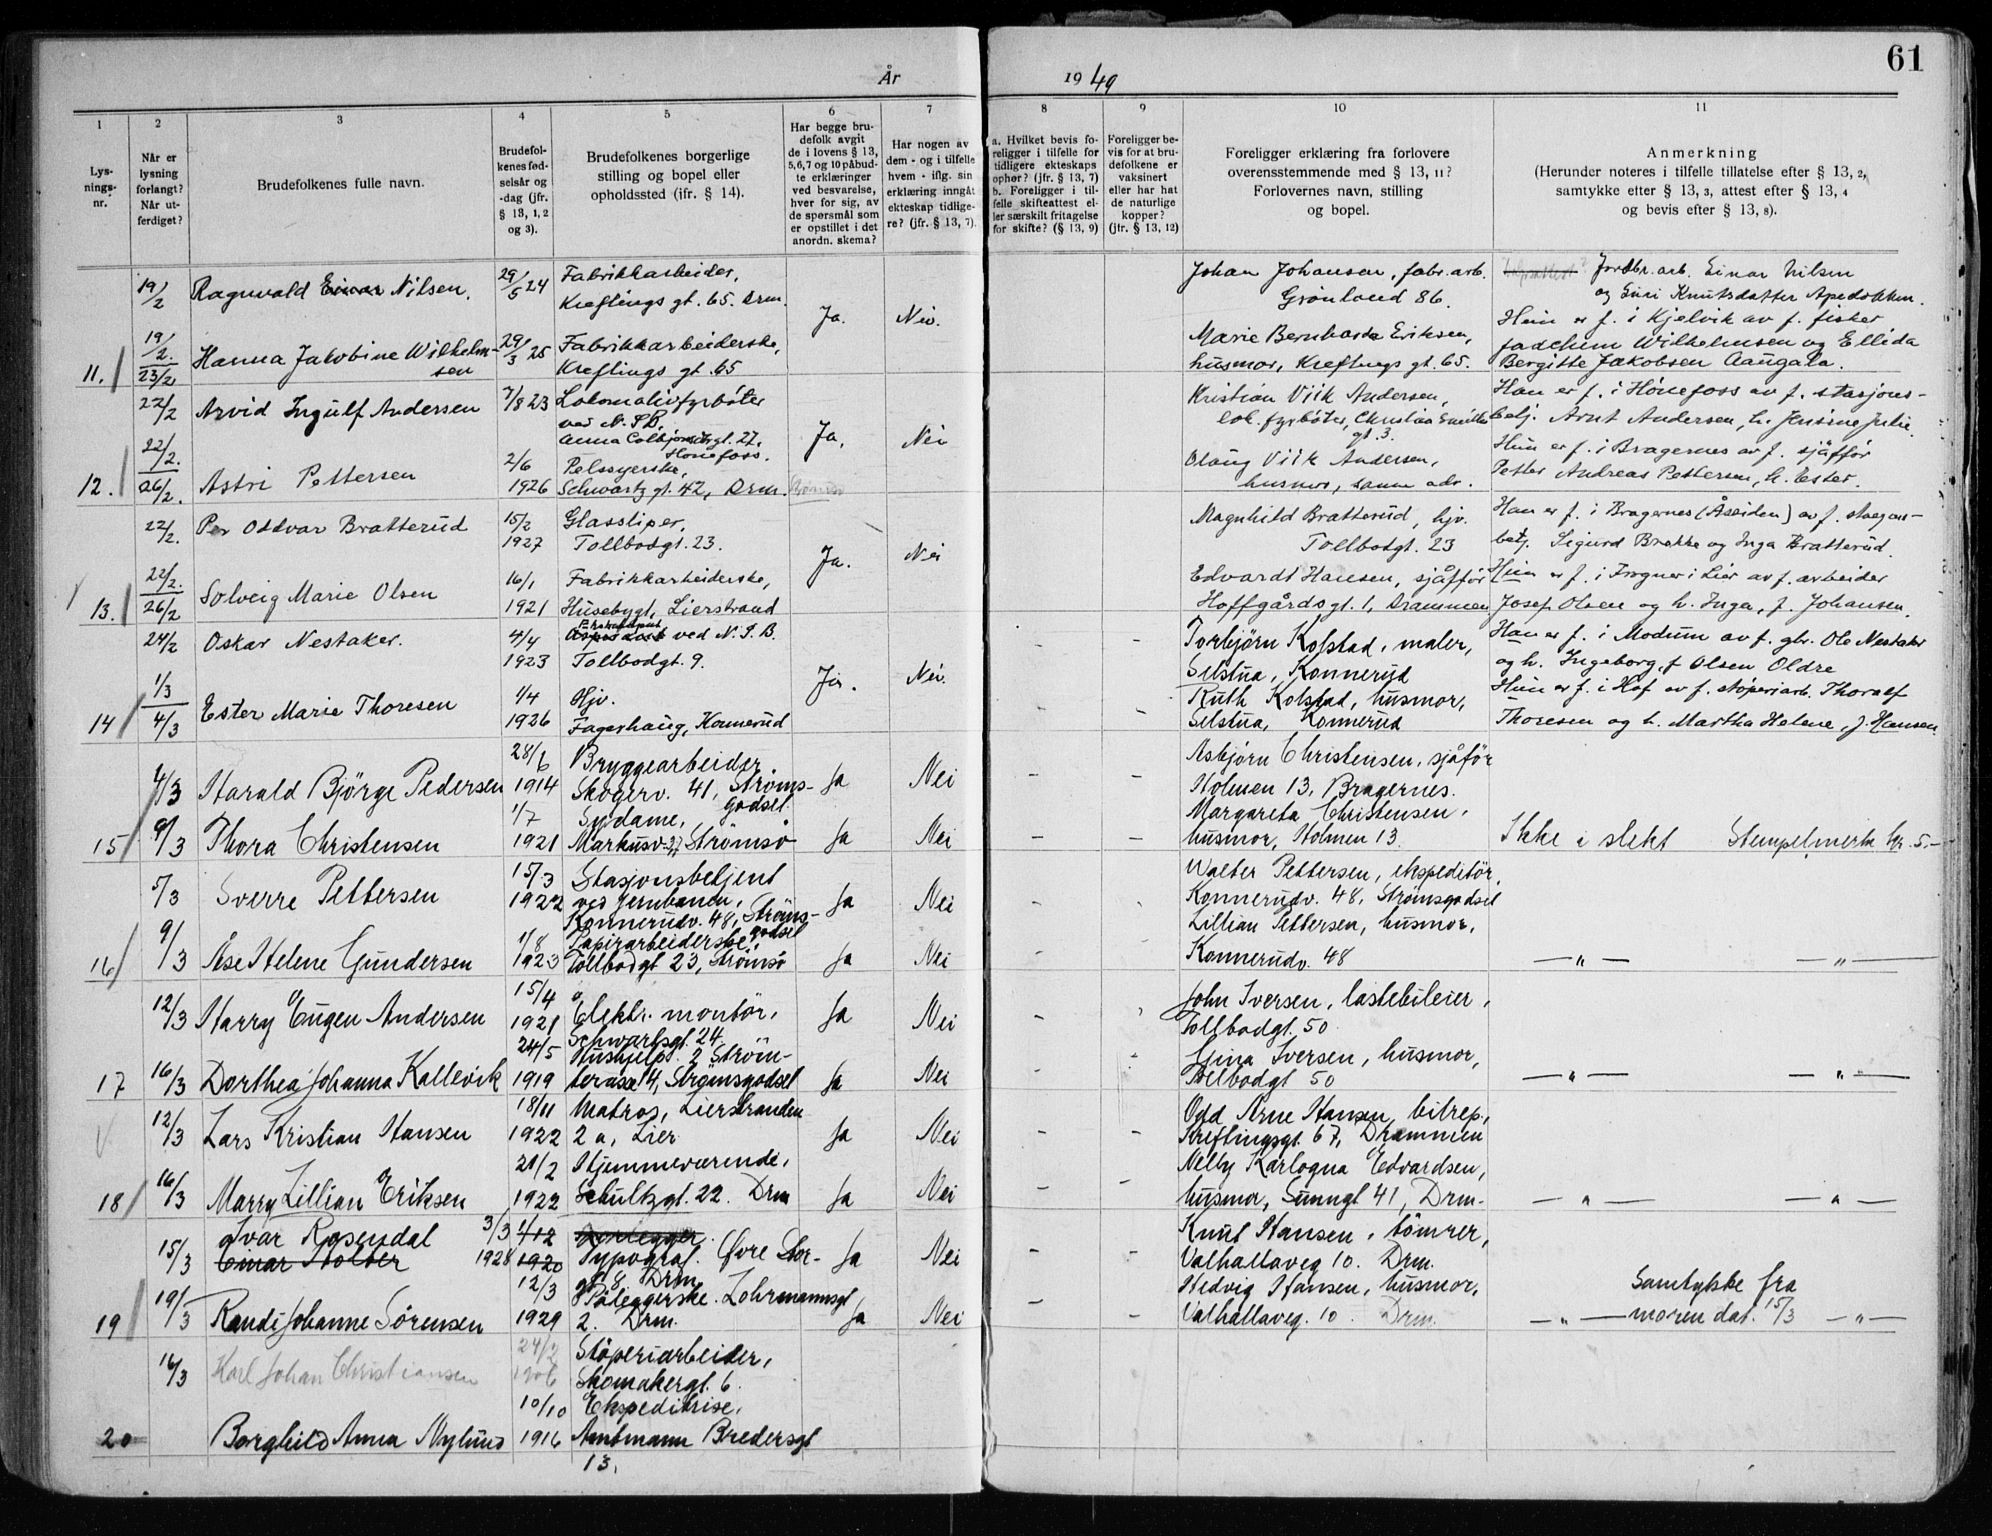 År 1949
61
1
2
3
4
5
6
7
8
9
10
11
Lys-
nings-
nr.
Når er
lysning
forlangt?
Når ut-
ferdiget?
Brudefolkenes fulle navn.
Brudefol-
kenes fød-
selsår og
-dag (jfr.
§ 13, 1, 2
og 3).
Brudefolkenes borgerlige
stilling og bopel eller
opholdssted (ifr. § 14).
Har begge bru-
defolk avgit
de i lovens § 13,
5,6,7 og 10 påbud-
te erklæringer
ved besvarelse,
hver for sig, av
de spørsmål som
er opstillet i det
anordn. skema?
Har nogen av
dem - og i tilfelle
hvem - iflg. sin
erklæring inngåt
ekteskap tidlige-
re? (jfr. § 13, 7).
a. Hvilket bevis fo-
religger i tilfelle for
tidligere ekteskaps
ophør? (jfr. § 13, 7)
b. Foreligger i til-
felle skifteattest el-
ler særskilt fritagelse
for skifte? (§ 13, 9)
Foreligger be-
vis for at bru-
defolkene er
vaksinert
eller har hat
de naturlige
kopper?
(jfr. § 13, 12)
Foreligger erklæring fra forlovere
overensstemmende med § 13, 11?
Forlovernes navn, stilling
og bopel.
Anmerkning
(Herunder noteres i tilfelle tillatelse efter § 13, 2,
samtykke efter § 13, 3, attest efter § 13, 4
og bevis efter § 13, 8).
19/2
Ragnvald Einar Nilsen.
29/5 24
Fabrikkarbeider,
Kreftings gt. 65. Drm.
Ja.
Nei.
Johan Johansen, fabr. arb.
Grønland 86.
Jordbr. arb. Einar Nilsen
og Guri Knutsdatter
11.
19/2.
23/2
Hanna Jakobine Wilhelm-
sen
29/3 25
Fabrikkarbeiderske,
Kreftings gt. 65
Marie Bernharda Eriksen,
husmor, Kreftings gt. 65.
Hun er f. i Kjelvik av f. fisker
Joachim Wilhelmsen og Ellida
Bergitte Jakobsen Aaugala.
22/2
Arvid Ingulf Andersen
7/8 23
Lokomotivfyrbøter
ved N.S.B.
Anna Colbjørnsdtrgt. 27.
Hønefoss.
Ja.
Nei
Kristian Viik Andersen,
lok. fyrbøter, Christian
gt. 3.
Han er f. i Hønefoss av f. stasjons-
betj. Arnt Andersen, h. Jensine Julie.
12.
22/2.
26/2.
Astri Pettersen
2/6
1926
Pelssyerske,
Schwartz gt. 42, Drm.
Olaug Viik Andersen,
husmor, samme adr.
Hun er f. i Bragernes av f. sjåfør
Petter Andreas Pettersen, h. Ester.
22/2.
Per Oddvar Bratterud
15/2
1927
Glassliper,
Tollbodgt. 23.
Ja.
Nei
Magnhild Bratterud, hjv.
Tollbodgt. 23
Han er f. i Bragernes (Åseiden) av f. stasjons-
betj. Sigurd Brekke og Inga Bratterud.
13.
22/2.
26/2
Solveig Marie Olsen
16/1
1921
Fabrikkarbeiderske,
Husebygt, Lierstrand
Edvardt Hansen, sjåfør
Hoffgårdsgt. 1, Drammen
Hun er f. i Frogner i Lier av f. arbeider
Josef Olsen og h. Inga, f. Johansen.
24/2
Oskar Nestaker.
4/4
1923
ved N.S.B.
Tollbodgt. 9.
Ja.
Nei.
Torbjørn Kolstad, maler,
Selstua, Konnerud
Han er f. i Modum av f. gbr. Ole Nestaker
og h. Ingeborg, f. Olsen Oldre
14
1/3
4/3
Ester Marie Thoresen
1/4
1926
Hjv.
Fagerhaug, Konnerud
Ruth Kolstad, husmor,
Selstua, Konnerud
Hun er f. i Hof av f. støperiarb. Thoralf
Thoresen og h. Martha Helene, f. Hansen
4/3
Harald Bjørge Pedersen
28/6
1914
Bryggearbeider.
Skogerv. 41, Strøms-
godset
Ja
Nei
Asbjørn Christensen, sjåfør
Holmen 13, Bragernes.
15
9/3
Thora Christensen
1/7
1921
Sydame,
Markusv. Strømsø
Ja
Nei
Margareta Christensen,
husmor, Holmen 13.
Ikke i slekt Stempelmerke kr. 5.-
5/3
Sverre Pettersen
15/3
1922
Stasjonsbetjent
ved jernbanen,
Konnerudv. 48, Strøms-
godset
Ja
Nei
Walter Pettersen, ekspeditør,
Konnerudv. 48, Strømsgodset
16
9/3
Åse Helene Gundersen
1/8
1923
Papirarbeiderske,
Tollbodgt 23, Strømsø
Ja
Nei
Lillian Pettersen, husmor,
Konnerudv. 48
— „ — — „ —
12/3
Harry Eugen Andersen
15/4
1921
Elektr. montør,
Schwartsgt. 24
Ja
Nei
John Iversen, lastebileier,
Tollbodgt. 50
17
16/3
Dorthea Johanna Kallevik
24/5
1919
Hushjelp. 2 Strøm-
terasse 14, Strømsgodset
Ja
Nei
Gina Iversen, husmor,
Tollbodgt 50
— „ — — „ —
12/3
Lars Kristian Hansen
18/11
1922
Matros, Lierstranden
2 a, Lier
Ja
Nei
Odd Arne Hansen, bilrep.,
Kreftingsgt. 67, Drammen
18
16/3
Marry Lillian Eriksen
21/2
1922
Hjemmeværende,
Schultzgt. 22. Drm
Ja
Nei
Nelly Karlogna Edvardsen,
husmor, Sunngt 41, Drm.
— „ — — „ —
15/3
Ivar Rosendal
Einar Holter
3/3 1/12
1928 1920
Rørlegger.
Typograf. Øvre Stor-
gt 8, Drm
Ja
Nei
Knut Hansen, tømrer,
Valhallaveg 10. Drm.
19
19/3
Randi Johanne Sørensen
12/3
1929
Påleggerske. Lohrmannsgt
2. Drm.
Ja
Nei
Hedvig Hansen, husmor,
Valhallaveg. 10. Drm.
Samtykke fra
— „ — moren dat. 15/3 — „ —
16/3
Karl Johan Christiansen
24/2
1906
Støperiarbeider,
Skomakergt. 6.
20
Borghild Anna Nylund
10/10
1916
Ekspeditrise,
Amtmann Bredersgt
13.